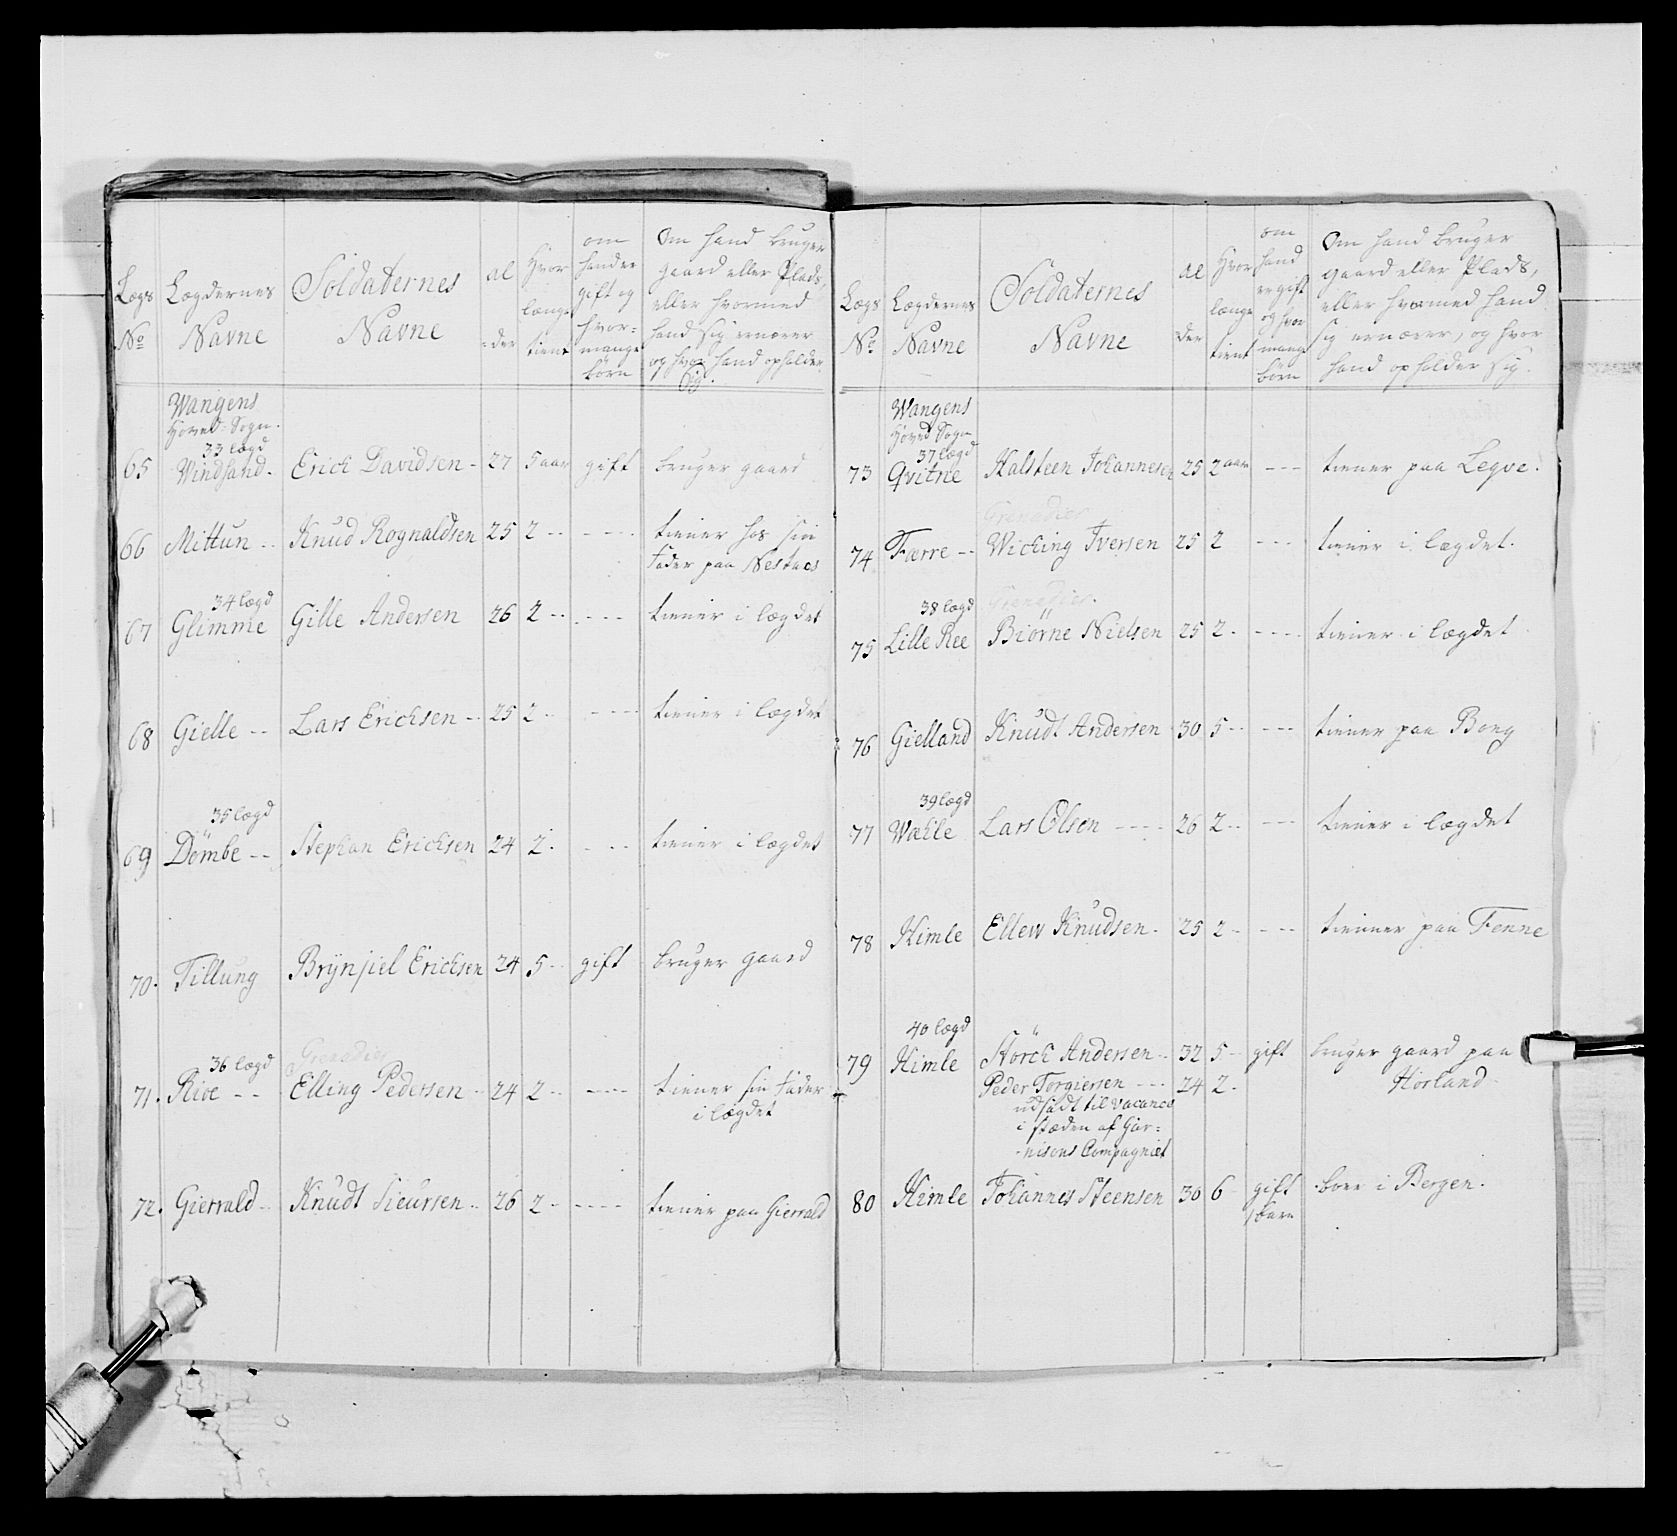 Lægs No
Lægdernes Navne
Soldaternes Navne
al:der
Hvor længe tient
om hand er gift og hvor:mange børn
Om hand bruger gaard eller Plads, eller hvormed hand sig ernærer og hvor hand opholder sig.
Wangens
Hoved-Sogn.
33 lægd
65 Windsand. Erich Davidsen - 27 5 aar gift bruger gaard
66 Mittun -- Knud Rognaldsen 25 2 -- ---- tiener hos sin
Fader paa Nestaas
34 lægd
67 Glimme Gille Andersen 26 2 -- ---- tiener i lægdet
68 Gielle -- Lars Erichsen -- 25 2 -- ---- tiener i lægdet
35 lægd
69 Dömbe -- Stephan Erichsen 24 2. ---- tiener i lægdet
70. Tillung Brynjiel Erichsen 24 5 -- gift bruger gaard
36 lægd
Grenadier
71. Rioe -- Elling Pedersen -- 24 2 -- ---- tiener sin Fader
i lægdet
72. Gierrald -- Knudt Sieursen -- 26 2 -- ---- tiener paa Gierrald
Lægs No
Lægdernes Navne
Soldaternes Navne
al der
Hvor længe tient
om hand er gift og hvor mange børn
Om hand bruger gaard eller Plads, eller hvormed hand sig ernærer, og hvor hand opholder sig.
Wangens
Hoved Sogn
37 lægd
73 Qvitne Halsteen Johannesen 25 2 aar --- tiener paa Leqve.
Grenadier
74 Færre -- Wiching Iversen 25 2 --- tiener i lægdet.
38 lægd
Grenadier.
75 Lille Ree Biörne Nielsen 25 2 - ---- tiener i lægdet
76 Gielland Knudt Andersen 30 5 -- --- tiener paa Boeg
39 lægd
77 Wæhle Lars Olsen ---- 26 2 -- --- tiener i lægdet
78 Himle Ellew Knudsen - 25 2 - --- tienner paa Fenne
40 lægd
79 Himle Störch Andersen -- 32 5 - gift bruger gaard paa
Hörland
Peder Torgiersen --- 24 2 -
udsadt til vacance
i stæden af Gar:
nisons Compagniet
80 Himle Johannes Steensen 30 6 gift boer i Bergen.
1 barn